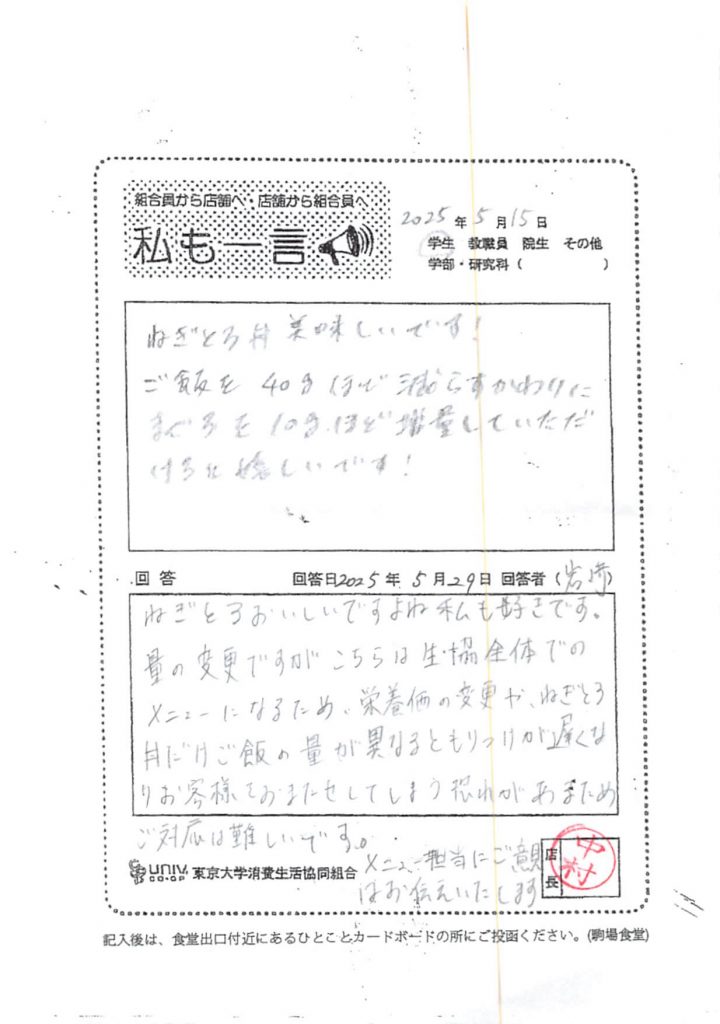 組合員から店舗へ・店舗から組合員へ
私も一言
2025年5月15日
学生 教職員 院生 その他
学部・研究科( )
ねぎとろ丼 美味しいです!
ご飯を 40gほど 減らすかわりに
まぐろを 10gほど 増量していただ
けると嬉しいです!
回答 回答日2025年5月29日 回答者(岩崎)
ねぎとろおいしいですよね 私も好きです。
量の変更ですが こちらは生協全体での
メニューになるため、栄養価の変更や、ねぎとろ
丼だけご飯の量が異なるともりつけが遅くな
りお客様をおまたせしてしまう恐れがあるため
ご対応は難しいです。
メニュー担当にご意見
はお伝えいたします
UNIV. 東京大学消費生活協同組合
店長
中村
記入後は、食堂出口付近にあるひとことカードボードの所にご投函ください。(駒場食堂)